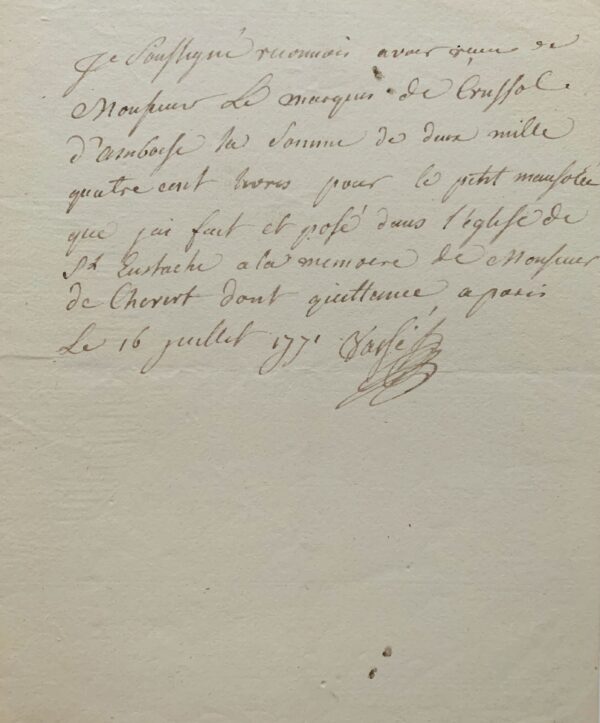 Je Soussigné reconnois avoir recu de
Monsieur Le marquis de Crussol
d'amboise la Somme de deux mille
quatre cent livres pour le petit mausolée
que jai fait et posé dans l'église de
St Eustache a la memoire de Monsieur
de Chevert dont quittance, a paris
Le 16 juillet 1771 Vassé